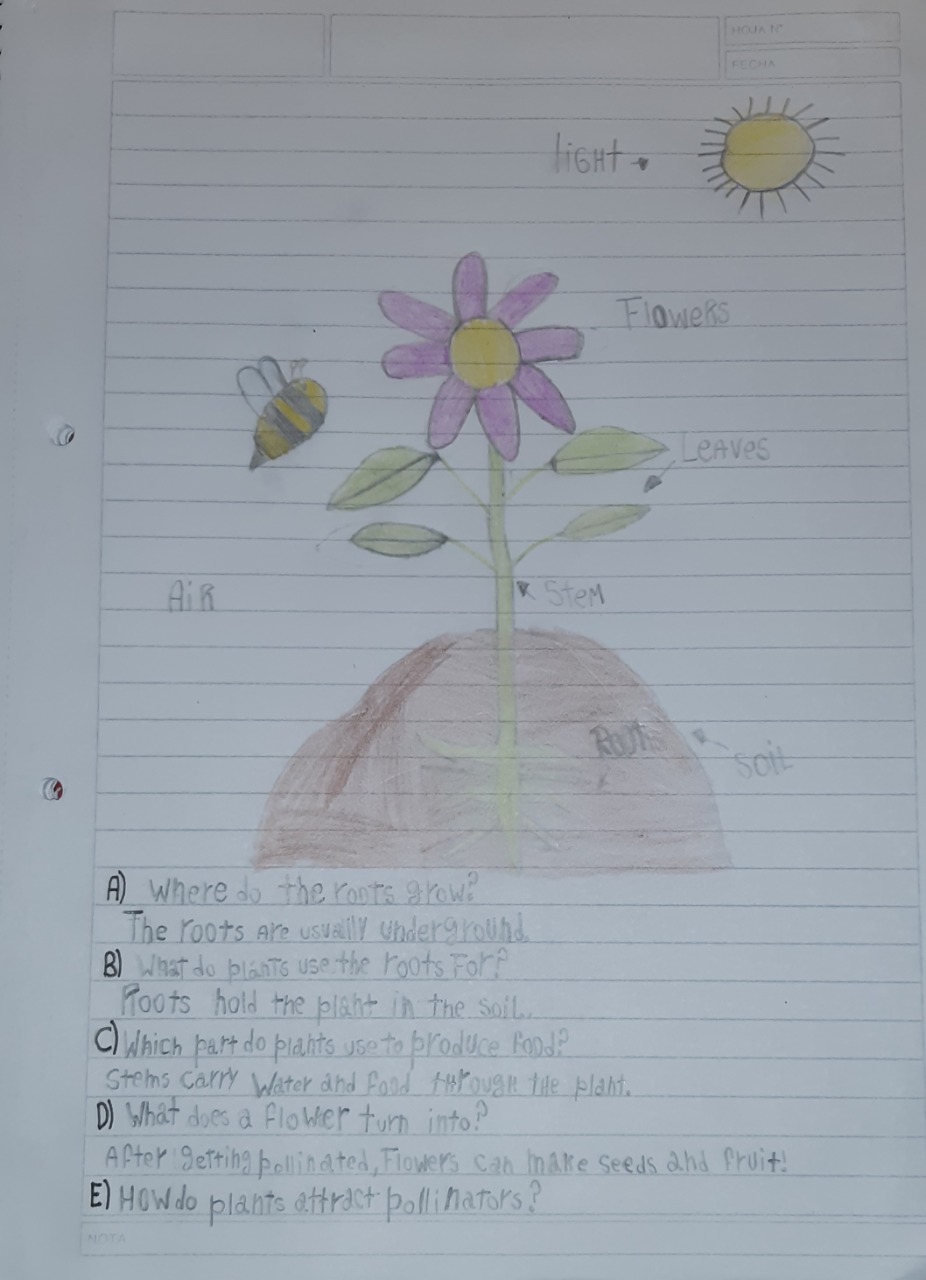 HOJA N°
FECHA
liGHt
Flowers
Leaves
AiR
Stem
Roots
SOiL
A) Where do the roots grow?
The roots are usually underground.
B) What do plants use the roots For?
Roots hold the plant in the soil.
C) Which part do plants use to produce food?
Stems carry Water and food through the plant.
D) What does a flower turn into?
After getting pollinated, Flowers can make seeds and fruit!
E) How do plants attract pollinators?
NOTA